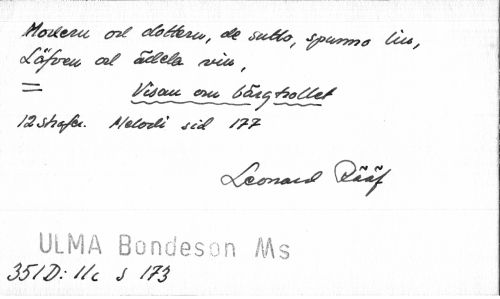 Modern och dottern, de sutto, spunno lin,
Löfven och ädela vin,
= Visan om bärgtrollet
12 strofer. Melodi sid 177
Leonard Rääf
ULMA Bondeson Ms
351D: 11c s 173